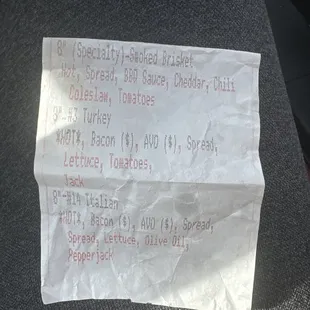 8" (Specialty)-Smoked Brisket
*Hot, Spread, BBQ Sauce, Cheddar, Chili
Coleslaw, Tomatoes
8"-#3 Turkey
*HOT*, Bacon ($), AVO ($), Spread,
Lettuce, Tomatoes,
Jack
8"-#14 Italian
*HOT*, Bacon ($), AVO ($), Spread,
Spread, Lettuce, Olive Oil,
Pepperjack